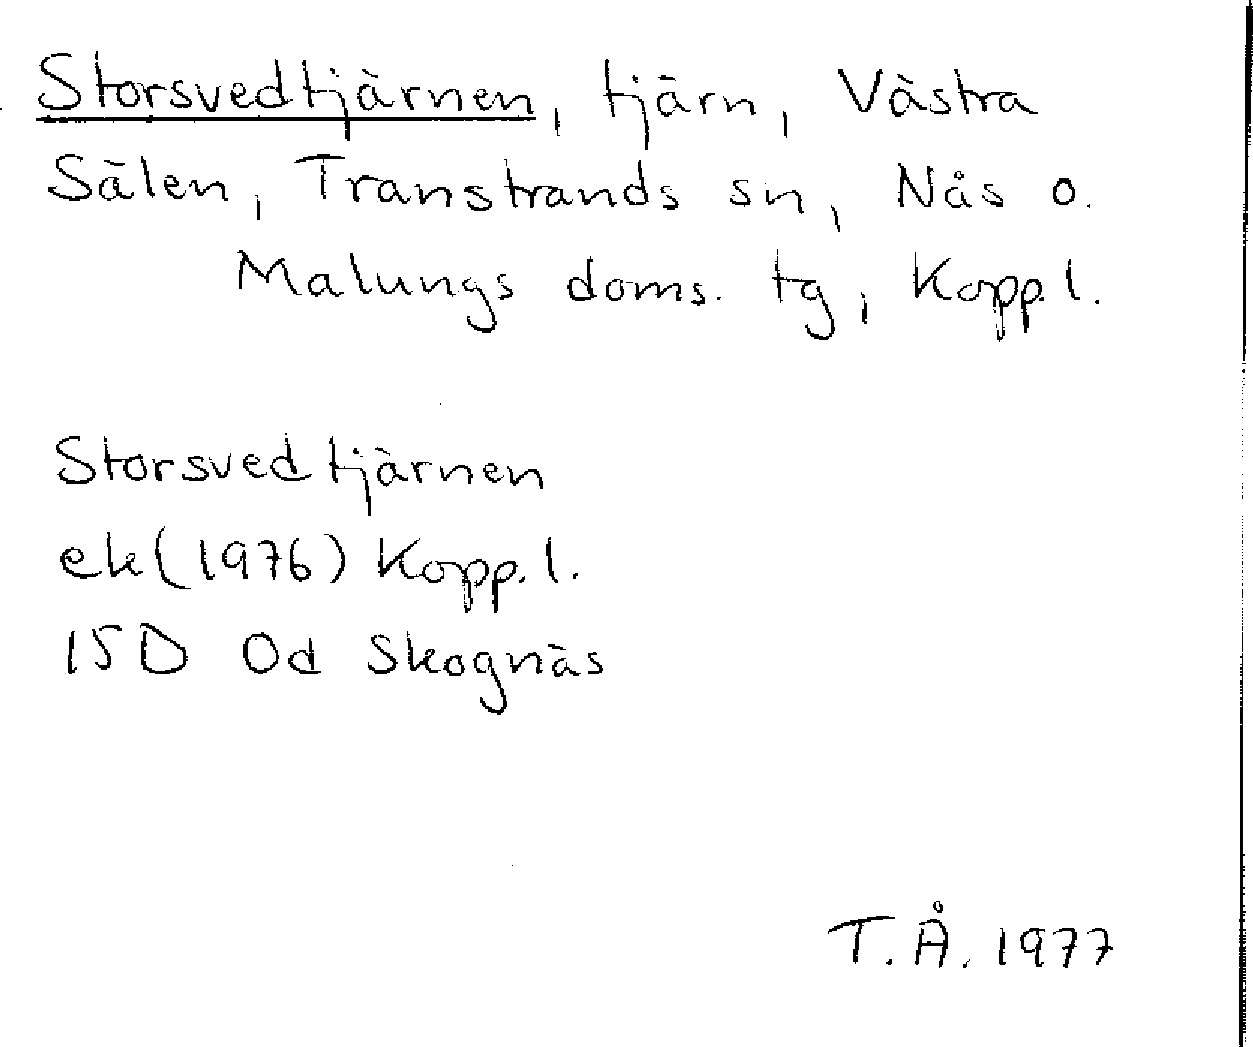 Storsvedtjärnen, tjärn, Västra
Sälen, Transtrands sn, Nås o.
Malungs doms. tg, Kopp.l.
Storsvedtjärnen
ek(1976) Kopp.l.
15D 0d Skognäs
T.Å. 1977